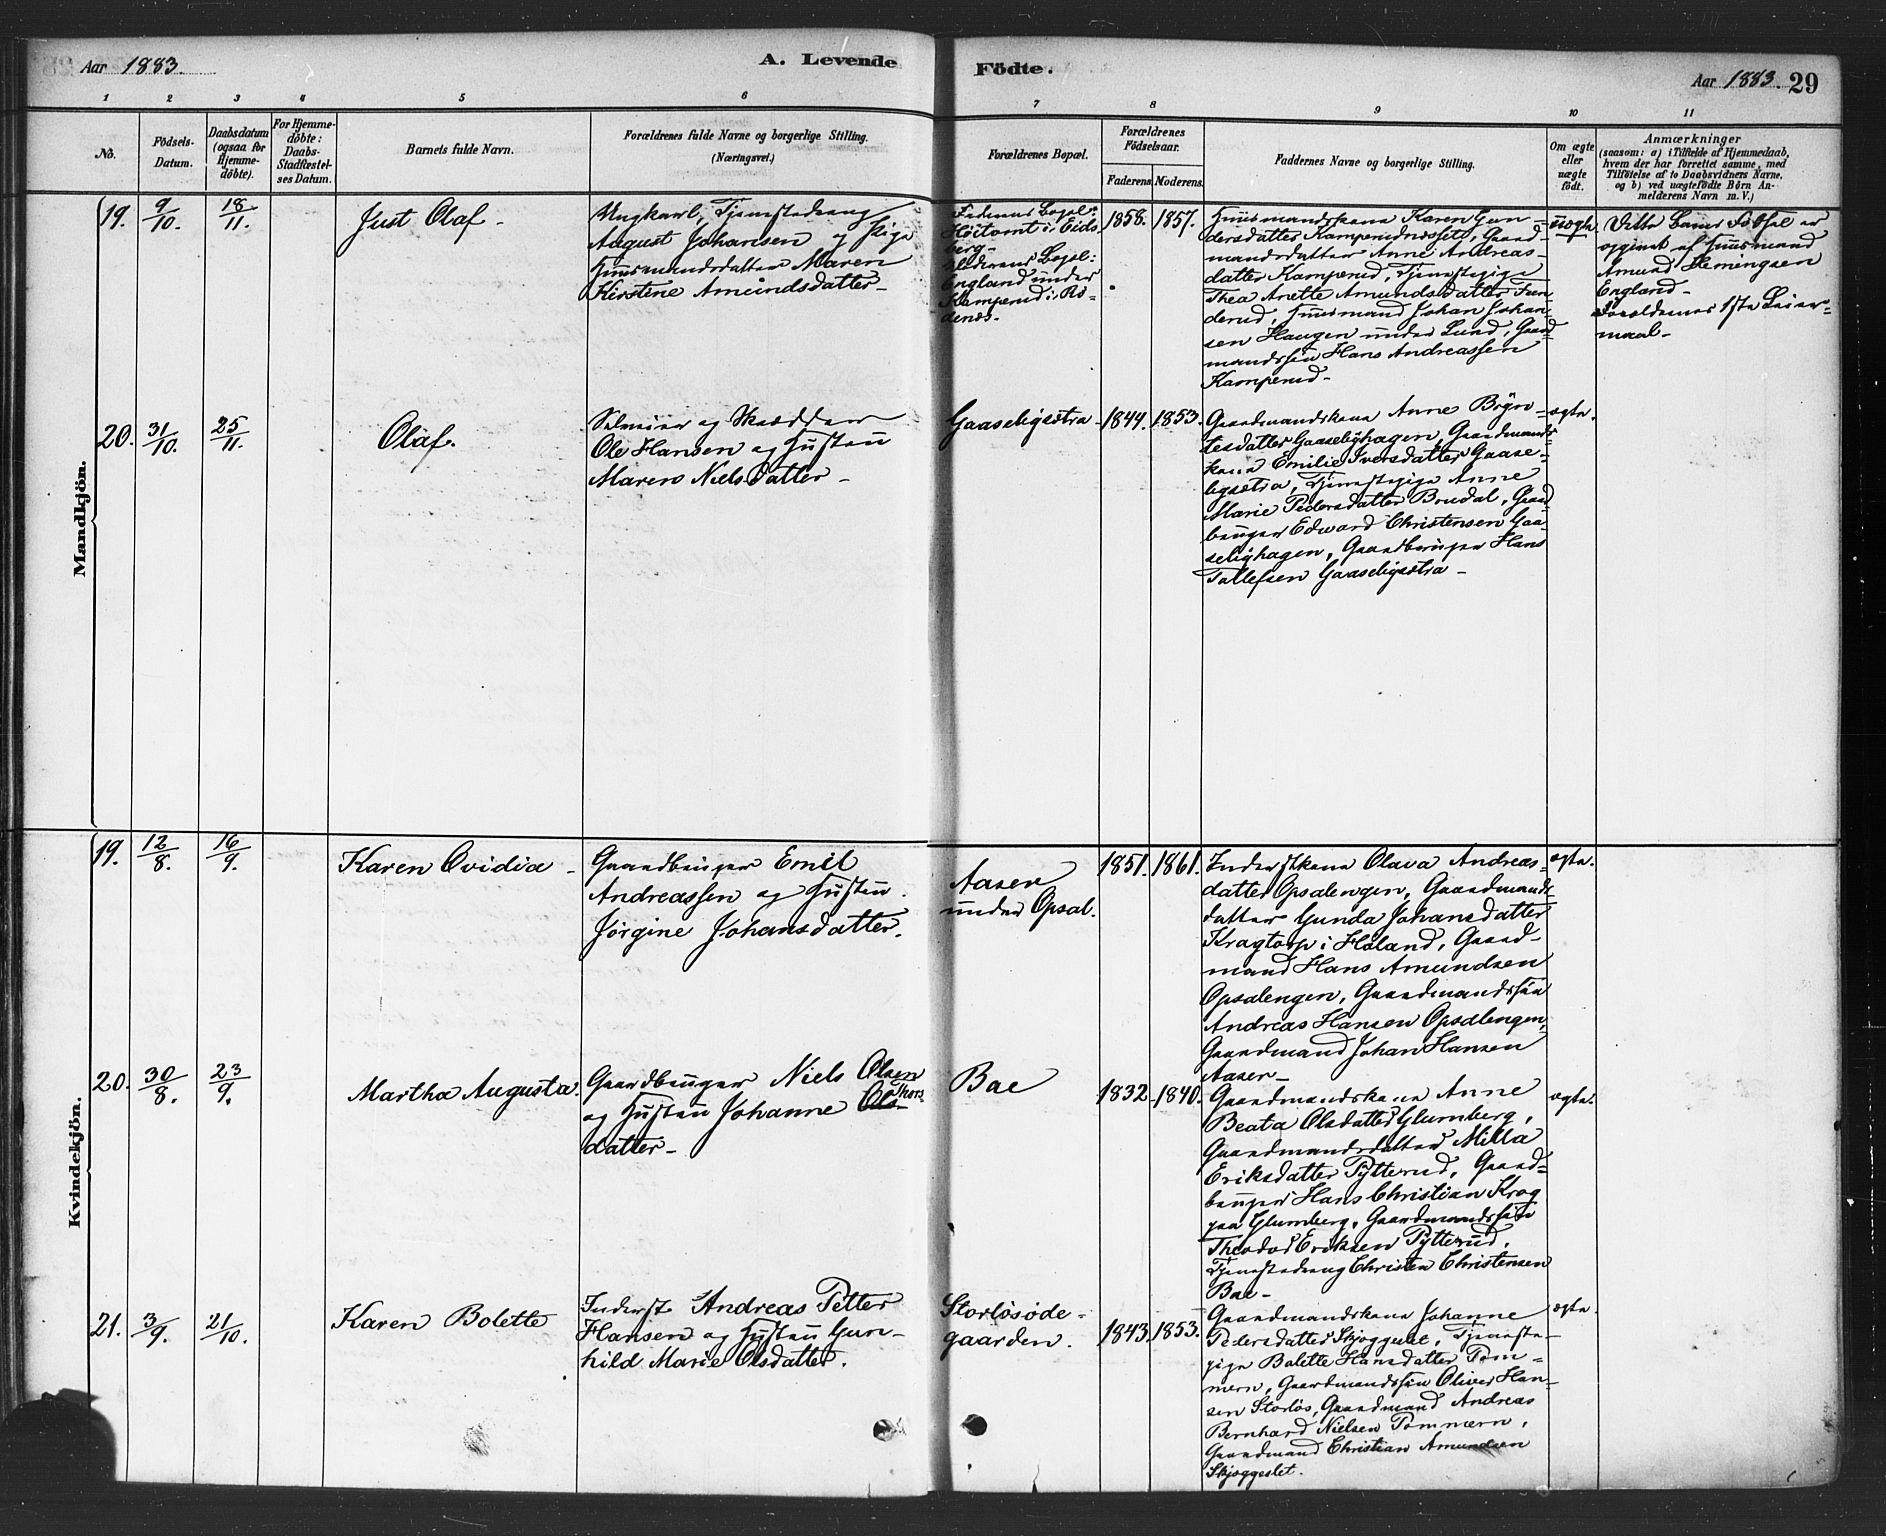 Aar 1883.
A. Levende
Födte.
Aar 1883. 29
1 2 3 4 5 6 7 8 9 10 11
No.
Födsels-
Datum.
Daabsdatum
(ogsaa for
Hjemme-
døbte).
For Hjemme-
døbte:
Daabs-
Stadfæstel-
ses Datum.
Barnets fulde Navn.
Forældrenes fulde Navne og borgerlige Stilling.
(Næringsvei.)
Forældrenes Bopæl.
Forældrenes
Födselsaar.
Faderens. Moderens.
Faddernes Navne og borgerlige Stilling.
Om ægte
eller
uægte
födt.
Anmærkninger
(saasom: a) i Tilfælde af Hjemmedaab,
hvem der har forrettet samme, med
Tilföielse af to Daabsvidners Navne,
og b) ved uægtefödte Börn An-
melderens Navn m. V.)
Mandkjön.
19.
9/10.
18/11.
Just Olaf -
Ungkarl, Tjenestedreng
August Johansen og Pige
Huusmandsdatter Maren
Kirstine Amundsdatter -
Faderens Bopæl:
Høitomt i Eids-
berg -
Moderens Bopæl:
England under
Kamperud i Rø-
denæs -
1858. 1857.
Huusmandskone Karen Gun-
dersdatter Kamperudnæsset, Gaard-
mandsdatter Anne Andreas-
datter Kamperud, Tjenestepige
Thea Anette Amundsdatter Fun-
derud, Huusmand Johan Johan-
sen Haugen under Lund, Gaard-
mandssøn Hans Andreassen
Kamperud -
uægte
Dette Barns Fødsel er
opgivet af Huusmand
Amund Hemingsen
England -
Forældrenes 1ste Leier-
maal -
20.
31/10.
25/11.
Olaf.
Selveier og Skrædder
Ole Hansen og Hustru
Maren Nielsdatter -
Gaaseligsætra
1844. 1853.
Gaardmandskone Anne Børn-
tesdatter Gaaselighagen, Gaardmands-
kone Emilie Iversdatter Gaase-
ligsætra, Tjenestepige Anne
Marie Pedersdatter Brudal, Gaard-
bruger Edward Christensen Gaa-
selighagen, Gaardbruger Hans
Tollefsen Gaaseligsætra -
ægte.
Kvindekjön.
19.
12/8.
16/9.
Karen Ovidia -
Gaardbruger Emil
Andreassen og Hustru
Jørgine Johansdatter.
Aaser
under Opsal.
1851. 1861.
Inderstkone Olava Andreas-
datter Opsalengen, Gaardmands-
datter Gunda Johansdatter
Kragtorp i Høland, Gaard-
mand Hans Amundsen
Opsalengen, Gaardmandssøn
Andreas Hansen Opsalengen,
Gaardmand Johan Hansen
Aaser -
ægte.
20.
30/8.
23/9.
Martha Augusta.
Gaardbruger Niels Olsen
og Hustru Johanne Ols Thors-
datter -
Bae
1832. 1840.
Gaardmandskone Anne
Beata Olsdatter Glumberg,
Gaardmandsdatter Milla
Eriksdatter Pytterud, Gaard-
bruger Hans Christian Krog
paa Glumberg, Gaardmandssøn
Theodor Eriksen Pytterud,
Tjenestedreng Christen Christensen
Bae -
ægte.
21.
3/9.
21/10.
Karen Bolette
Inderst Andreas Petter
Hansen og Hustru Gun-
hild Marie Olsdatter.
Storløsøde-
gaarden.
1843. 1853.
Gaardmandskone Johanne
Pedersdatter Skjøggeslet, Tjeneste-
pige Bolette Hansdatter Pom-
mern, Gaardmandssøn Oliver Han-
sen Storløs, Gaardmand Andreas
Bernhard Nielsen Pommern,
Gaardmand Christian Amundsen
Skjøggeslet.
ægte.